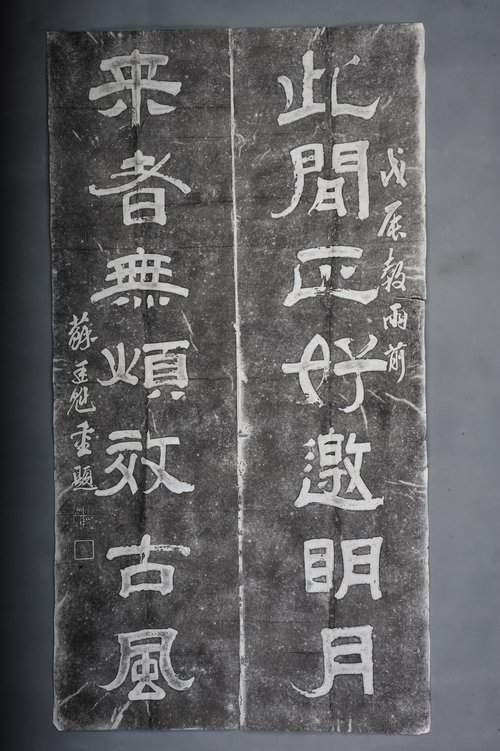 戊辰穀雨前
此間正好邀明月
来者無須效古風
蘇重題